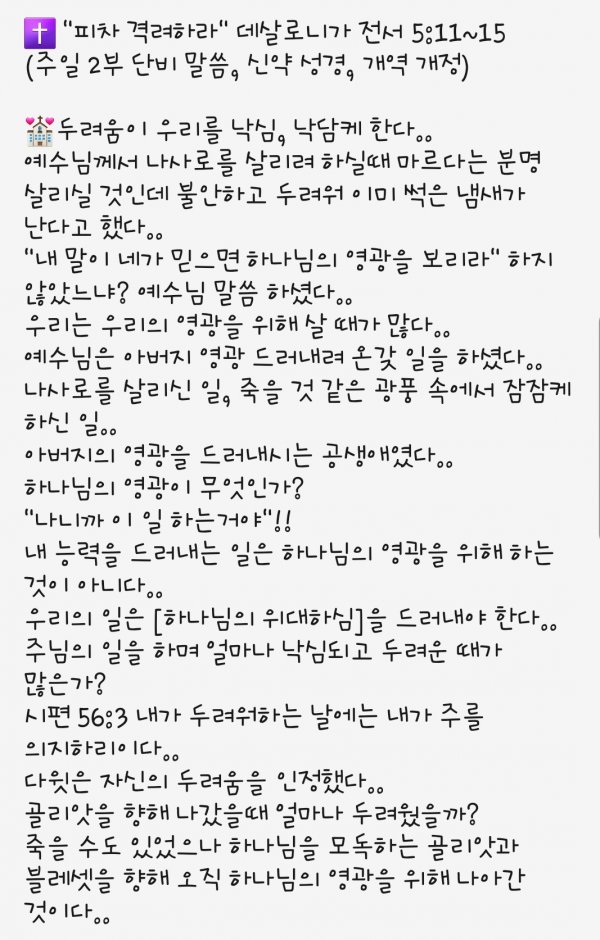 ✝️ "피차 격려하라" 데살로니가 전서 5:11~15
(주일 2부 단비 말씀, 신약 성경, 개역 개정)
💒두려움이 우리를 낙심, 낙담케 한다..
예수님께서 나사로를 살리려 하실때 마르다는 분명
살리실 것인데 불안하고 두려워 이미 썩은 냄새가
난다고 했다..
"내 말이 네가 믿으면 하나님의 영광을 보리라" 하지
않았느냐? 예수님 말씀 하셨다..
우리는 우리의 영광을 위해 살 때가 많다..
예수님은 아버지 영광 드러내려 온갖 일을 하셨다..
나사로를 살리신 일, 죽을 것 같은 광풍 속에서 잠잠케
하신 일..
아버지의 영광을 드러내시는 공생애였다..
하나님의 영광이 무엇인가?
"나니까 이 일 하는거야"!!
내 능력을 드러내는 일은 하나님의 영광을 위해 하는
것이 아니다..
우리의 일은 [하나님의 위대하심]을 드러내야 한다..
주님의 일을 하며 얼마나 낙심되고 두려운 때가
많은가?
시편 56:3 내가 두려워하는 날에는 내가 주를
의지하리이다..
다윗은 자신의 두려움을 인정했다..
골리앗을 향해 나갔을때 얼마나 두려웠을까?
죽을 수도 있었으나 하나님을 모독하는 골리앗과
블레셋을 향해 오직 하나님의 영광을 위해 나아간
것이다..